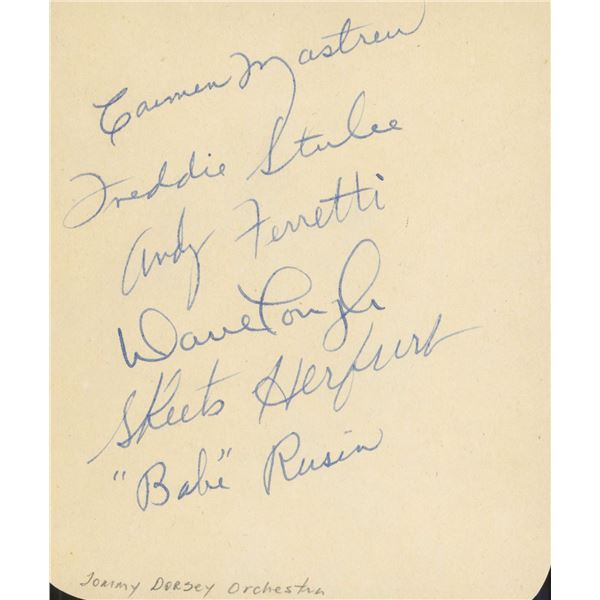 Carmen Mastren
Freddie Stulce
Andy Ferretti
Dave Tough
Skeets Herfurt
"Babe" Rusin
Tommy Dorsey Orchestra